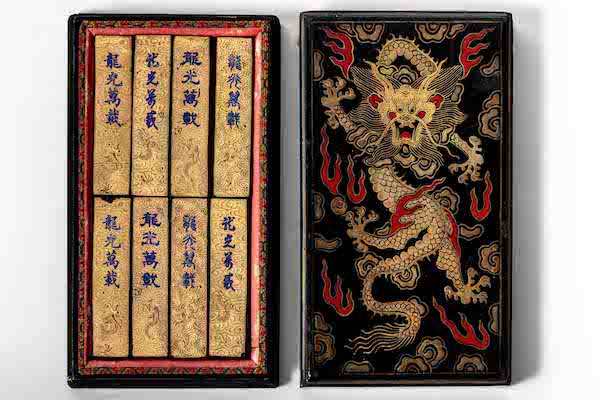 龍光萬載
龍光萬載
龍光萬載
龍光萬載
龍光萬載
龍光萬載
龍光萬載
龍光萬載